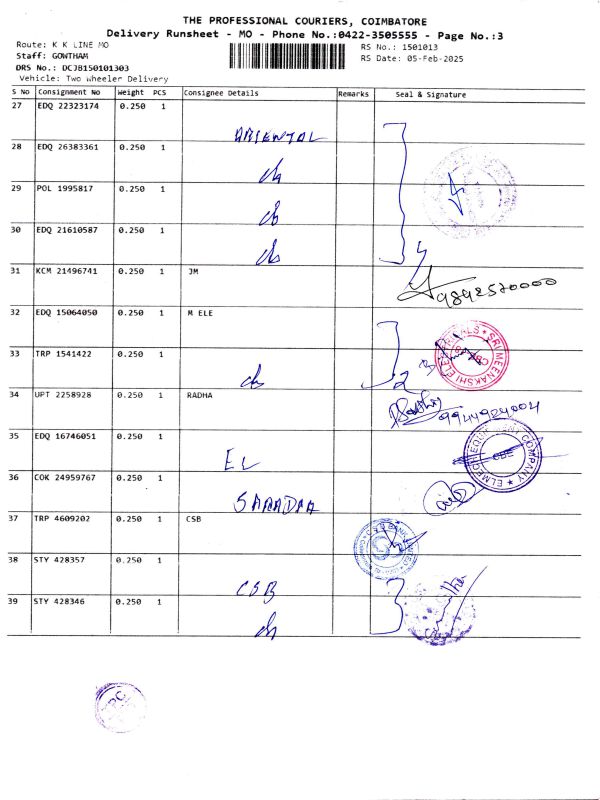 THE PROFESSIONAL COURIERS, COIMBATORE
Delivery Runsheet - MO - Phone No.:0422-3505555 - Page No.:3
Route: K K LINE MO
RS No.: 1501013
Staff: GOWTHAM
RS Date: 05-Feb-2025
DRS No.: DCJB150101303
Vehicle: Two Wheeler Delivery
S No Consignment No Weight PCS Consignee Details Remarks Seal & Signature
27 EDQ 22323174 0.250 1
ORIENTOL
28 EDQ 26383361 0.250 1
29 POL 1995817 0.250 1
30 EDQ 21610587 0.250 1
4
31 KCM 21496741 0.250 1 JM
9892570000
32 EDQ 15064050 0.250 1 M ELE
SRI MEENAKSHI ELECTRICALS
33 TRP 1541422 0.250 1
2
34 UPT 2258928 0.250 1 RADHA
9944924004
35 EDQ 16746051 0.250 1
EL
ELMECH EQUIPMENT COMPANY
CBE
36 COK 24959767 0.250 1
SARADHA
37 TRP 4609202 0.250 1 CSB
CSB BANK LIMITED
38 STY 428357 0.250 1
CSB
39 STY 428346 0.250 1